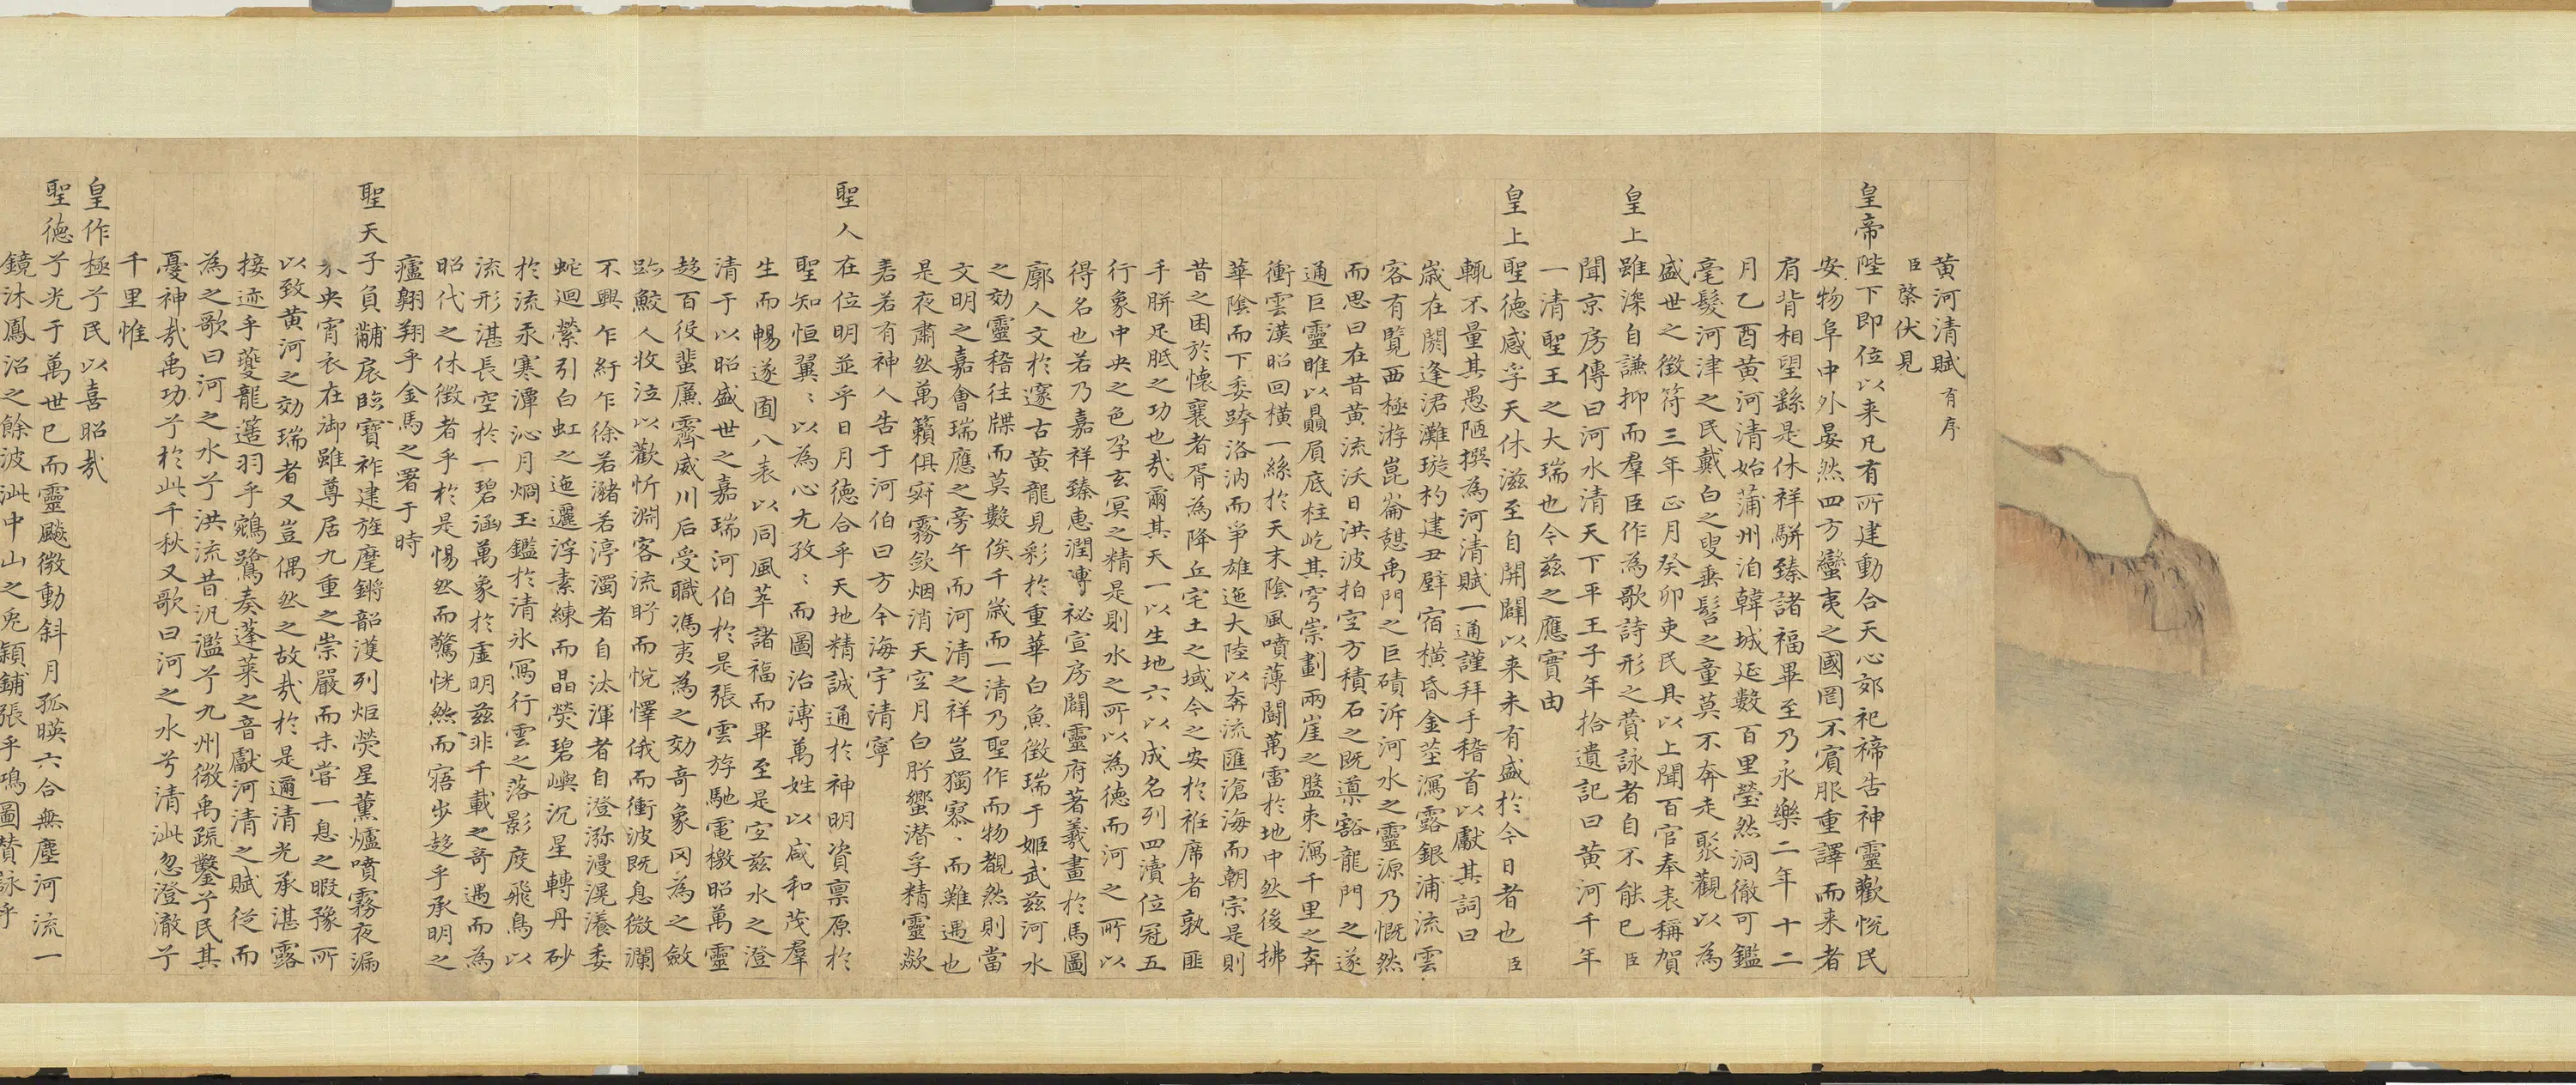 黄河清賦有序
臣棨伏見
皇帝陛下即位以来凡有所建動合天心郊祀禘告神靈歡悅民
安物阜中外晏然四方蠻夷之國罔不賓服重譯而来者
肩背相望繇是休祥駢臻諸福畢至乃永樂二年十二
月乙酉黄河清始蒲州洎韓城延數百里瑩然洞徹可鑑
毫髮河津之民戴白之叟垂髫之童莫不奔走聚觀以為
盛世之徵符三年正月癸卯吏民具以上聞百官奉表稱賀
皇上雖深自謙抑而羣臣作為歌詩形之賛詠者自不能已臣
聞京房傳曰河水清天下平王子年拾遺記曰黄河千年
一清聖王之大瑞也今兹之應實由
皇上聖德感孚天休滋至自開闢以来未有盛於今日者也臣
輒不量其愚陋撰為河清賦一通謹拜手稽首以獻其詞曰
歲在閼逢涒灘璇杓建丑壁宿橫昏金莖瀉露銀浦流雲
客有覽西極游崑崙憇禹門之巨磧泝河水之靈源乃慨然
而思曰在昔黄流沃日洪波拍空方積石之既導豁龍門之遂
通巨靈睢以贔屓底柱屹其穹崇劃兩崖之盤束瀉千里之奔
衝雲漢昭回橫一絲於天末陰風噴薄闘萬雷於地中然後拂
華陰而下委跨洛汭而爭雄迤大陸以奔流匯滄海而朝宗是則
昔之困於懷襄者胥為降丘宅土之域今之安於袵席者孰匪
手胼足胝之功也哉爾其天一以生地六以成名列四瀆位冠五
行象中央之色孕玄冥之精是則水之所以為德而河之所以
得名也若乃嘉祥臻惠潤溥祕宣房闢靈府著羲畫於馬圖
廓人文於邃古黄龍見彩於重華白魚徵瑞于姬武兹河水
之効靈稽往牒而莫數俟千歲而一清乃聖作而物覩然則當
文明之嘉會瑞應之旁午而河清之祥豈獨寥〻而難遇也
是夜肅然萬籟俱寂霧歛烟消天空月白肸蠁潜孚精靈歘
砉若有神人告于河伯曰方今海宇清寧
聖人在位明並乎日月德合乎天地精誠通於神明資禀原於
聖知恒翼〻以為心尤孜〻而圖治溥萬姓以咸和茂羣
生而暢遂囿八表以同風萃諸福而畢至是宜兹水之澄
清于以昭盛世之嘉瑞河伯於是張雲斿馳電檄昭萬靈
趍百役蜚廉霽威川后受職馮夷為之効奇象罔為之斂
跡鮫人收泣以歡忻淵客流眄而悅懌俄而衝波既息微瀾
不興乍紆乍徐若瀦若渟濁者自汰渾者自澄瀰漫滉瀁委
蛇迴縈引白虹之迤邐浮素練而晶熒碧嶼沉星轉丹砂
於流汞寒潭沁月烱玉鑑於清氷寫行雲之落影度飛鳥以
流形湛長空於一碧涵萬象於虚明兹非千載之奇遇而為
昭代之休徴者乎於是惕然而驚恍然而寤步趍乎承明之
廬翱翔乎金馬之署于時
聖天子負黼扆臨寶祚建旌麾鏘韶濩列炬熒星薰爐噴霧夜漏
未央宵衣在御雖尊居九重之崇嚴而未嘗一息之暇豫所
以致黄河之効瑞者又豈偶然之故哉於是邇清光承湛露
接迹乎夔龍簉羽乎鵷鷺奏蓬莱之音獻河清之賦從而
為之歌曰河之水兮洪流昔汎濫兮九州微禹疏鑿兮民其
憂神哉禹功兮於此千秋又歌曰河之水兮清泚忽澄澈兮
千里惟
皇作極兮民以喜昭哉
聖德兮光于萬世已而靈飈微動斜月孤暎六合無塵河流一
鏡沐鳳沼之餘波泚中山之兎穎鋪張乎鴻圖賛詠乎